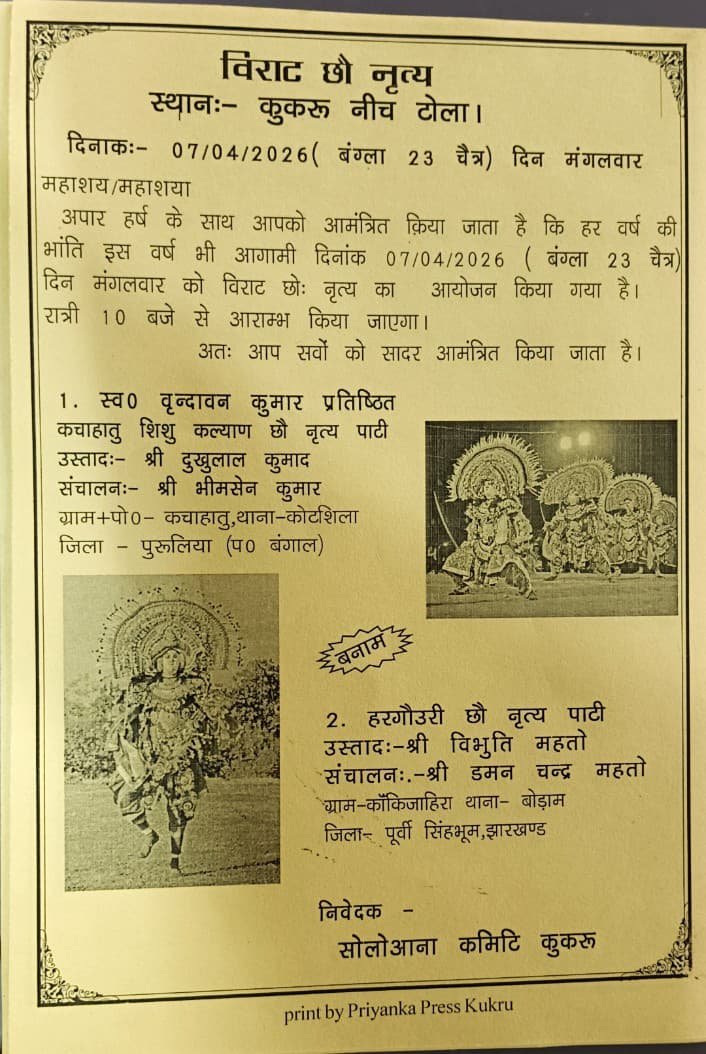 विराट छौ नृत्य
स्थानः- कुकरू नीच टोला।
दिनाकः- 07/04/2026( बंग्ला 23 चैत्र) दिन मंगलवार
महाशय/महाशया
अपार हर्ष के साथ आपको आमंत्रित क्रिया जाता है कि हर वर्ष की
भांति इस वर्ष भी आगामी दिनांक 07/04/2026 ( बंग्ला 23 चैत्र)
दिन मंगलवार को विराट छोः नृत्य का आयोजन किया गया है।
रात्री 10 बजे से आराम्भ किया जाएगा।
अतः आप सर्वो को सादर आमंत्रित किया जाता है।
1. स्व0 वृन्दावन कुमार प्रतिष्ठित
कचाहातु शिशु कल्याण छौ नृत्य पाटी
उस्तादः- श्री दुखुलाल कुमाद
संचालनः- श्री भीमसेन कुमार
ग्राम+पो0- कचाहातु,थाना-कोटशिला
जिला - पुरूलिया (प0 बंगाल)
बनाम
2. हरगौउरी छौ नृत्य पाटी
उस्तादः-श्री विभुति महतो
संचालनः.-श्री डमन चन्द्र महतो
ग्राम-कॉंकिजाहिरा थाना- बोड़ाम
जिला- पूर्वी सिंहभूम,झारखण्ड
निवेदक -
सोलोआना कमिटि कुकरू
print by Priyanka Press Kukru